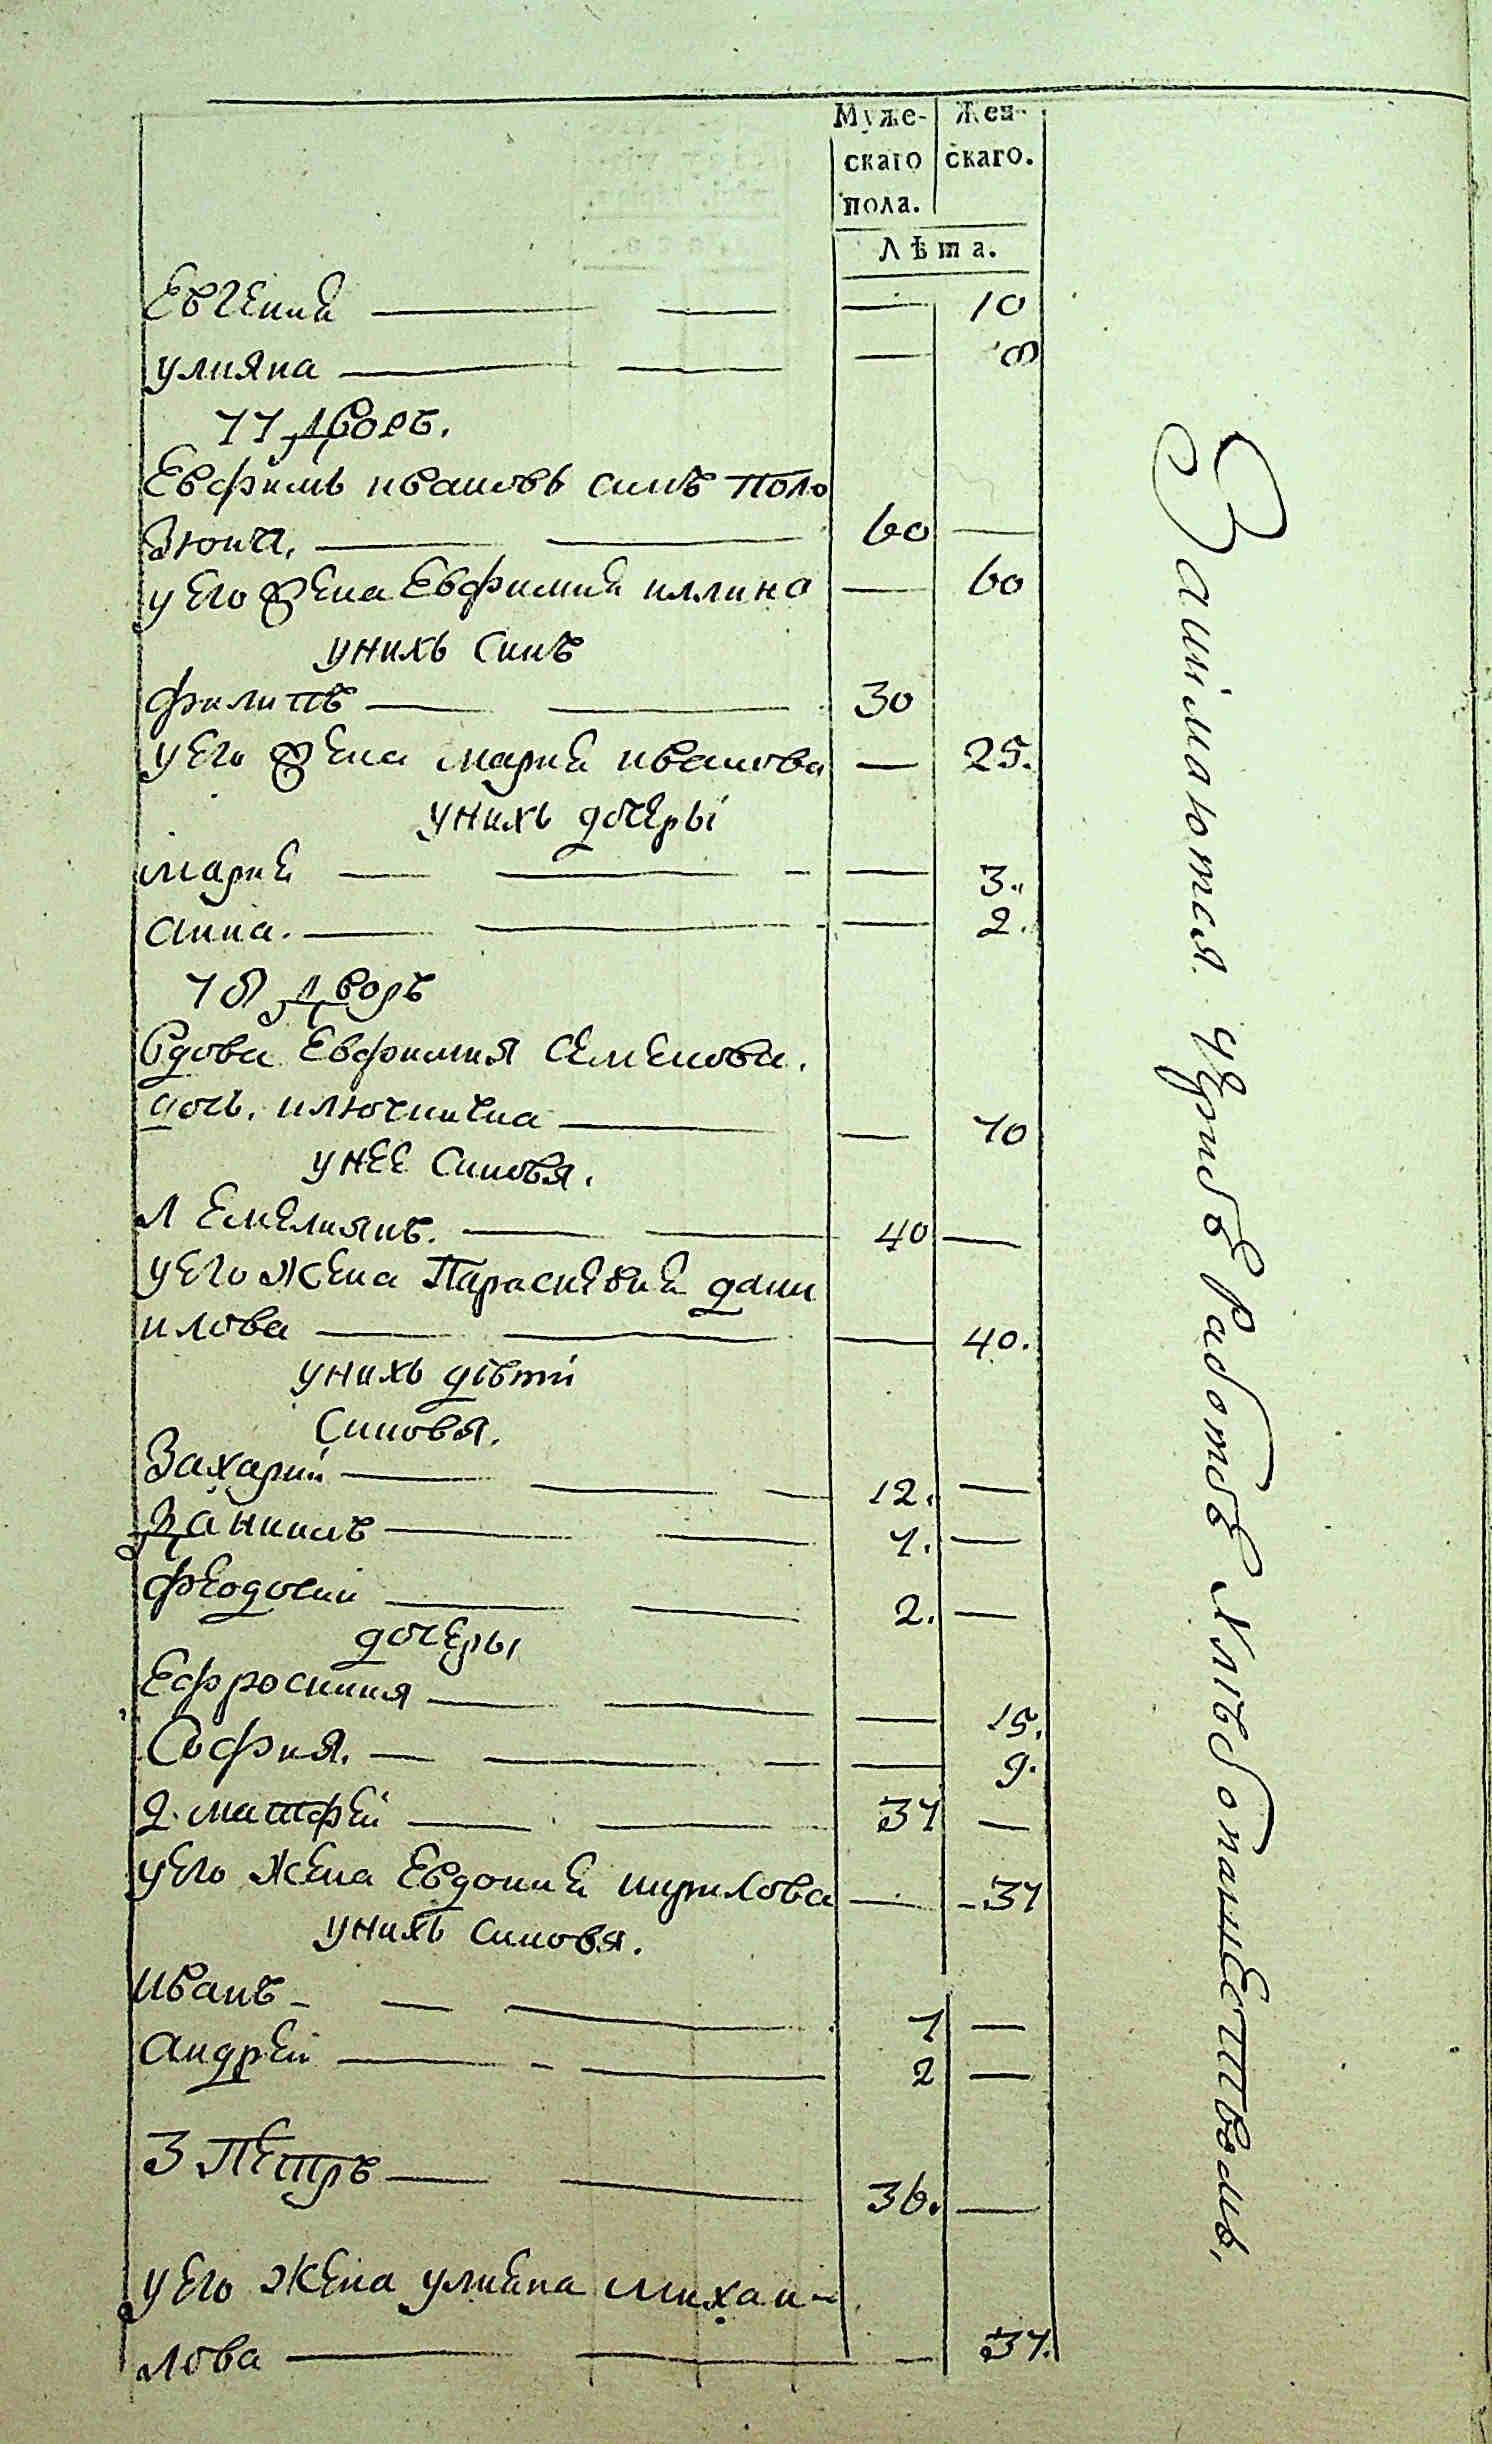 Муже-
скаго
пола.
Жен-
скаго.
Лѣта.
Евгения — — — 10
улияна — — — 8
77 дворъ.
Евфимъ ивановъ синъ Поло
Зюна, — — 60 —
у его жена Евфимия иллина — 60
унихъ синъ
филипъ — — 30
у его жена мария иванова — 25.
унихъ дочеры
мария — — — 3.
анна. — — — 2.
78 дворъ
Вдова Евфимия Семенова.
дочь. ключникна — — 70
унее синовя.
1 Емелиянъ. — — 40 —
у его жена Параскевия дани
илова — — — 40.
унихъ дѣти
Синовя.
Захарий — — — 12. —
Даниилъ — — 7. —
феодосий — — 2. —
дочеры
Ефросиния — — — 15.
София. — — — — 9.
2. матфей — — 37 —
у его жена Евдокия кирилова — 37
унихъ синовя.
иванъ — — — 7 —
андрей — — — 2 —
3 Петръ — — 36. —
у его жена улияна михаи-
лова — — — 37.
Занімаются чуждъ работѣ хлѣбопашествомъ,